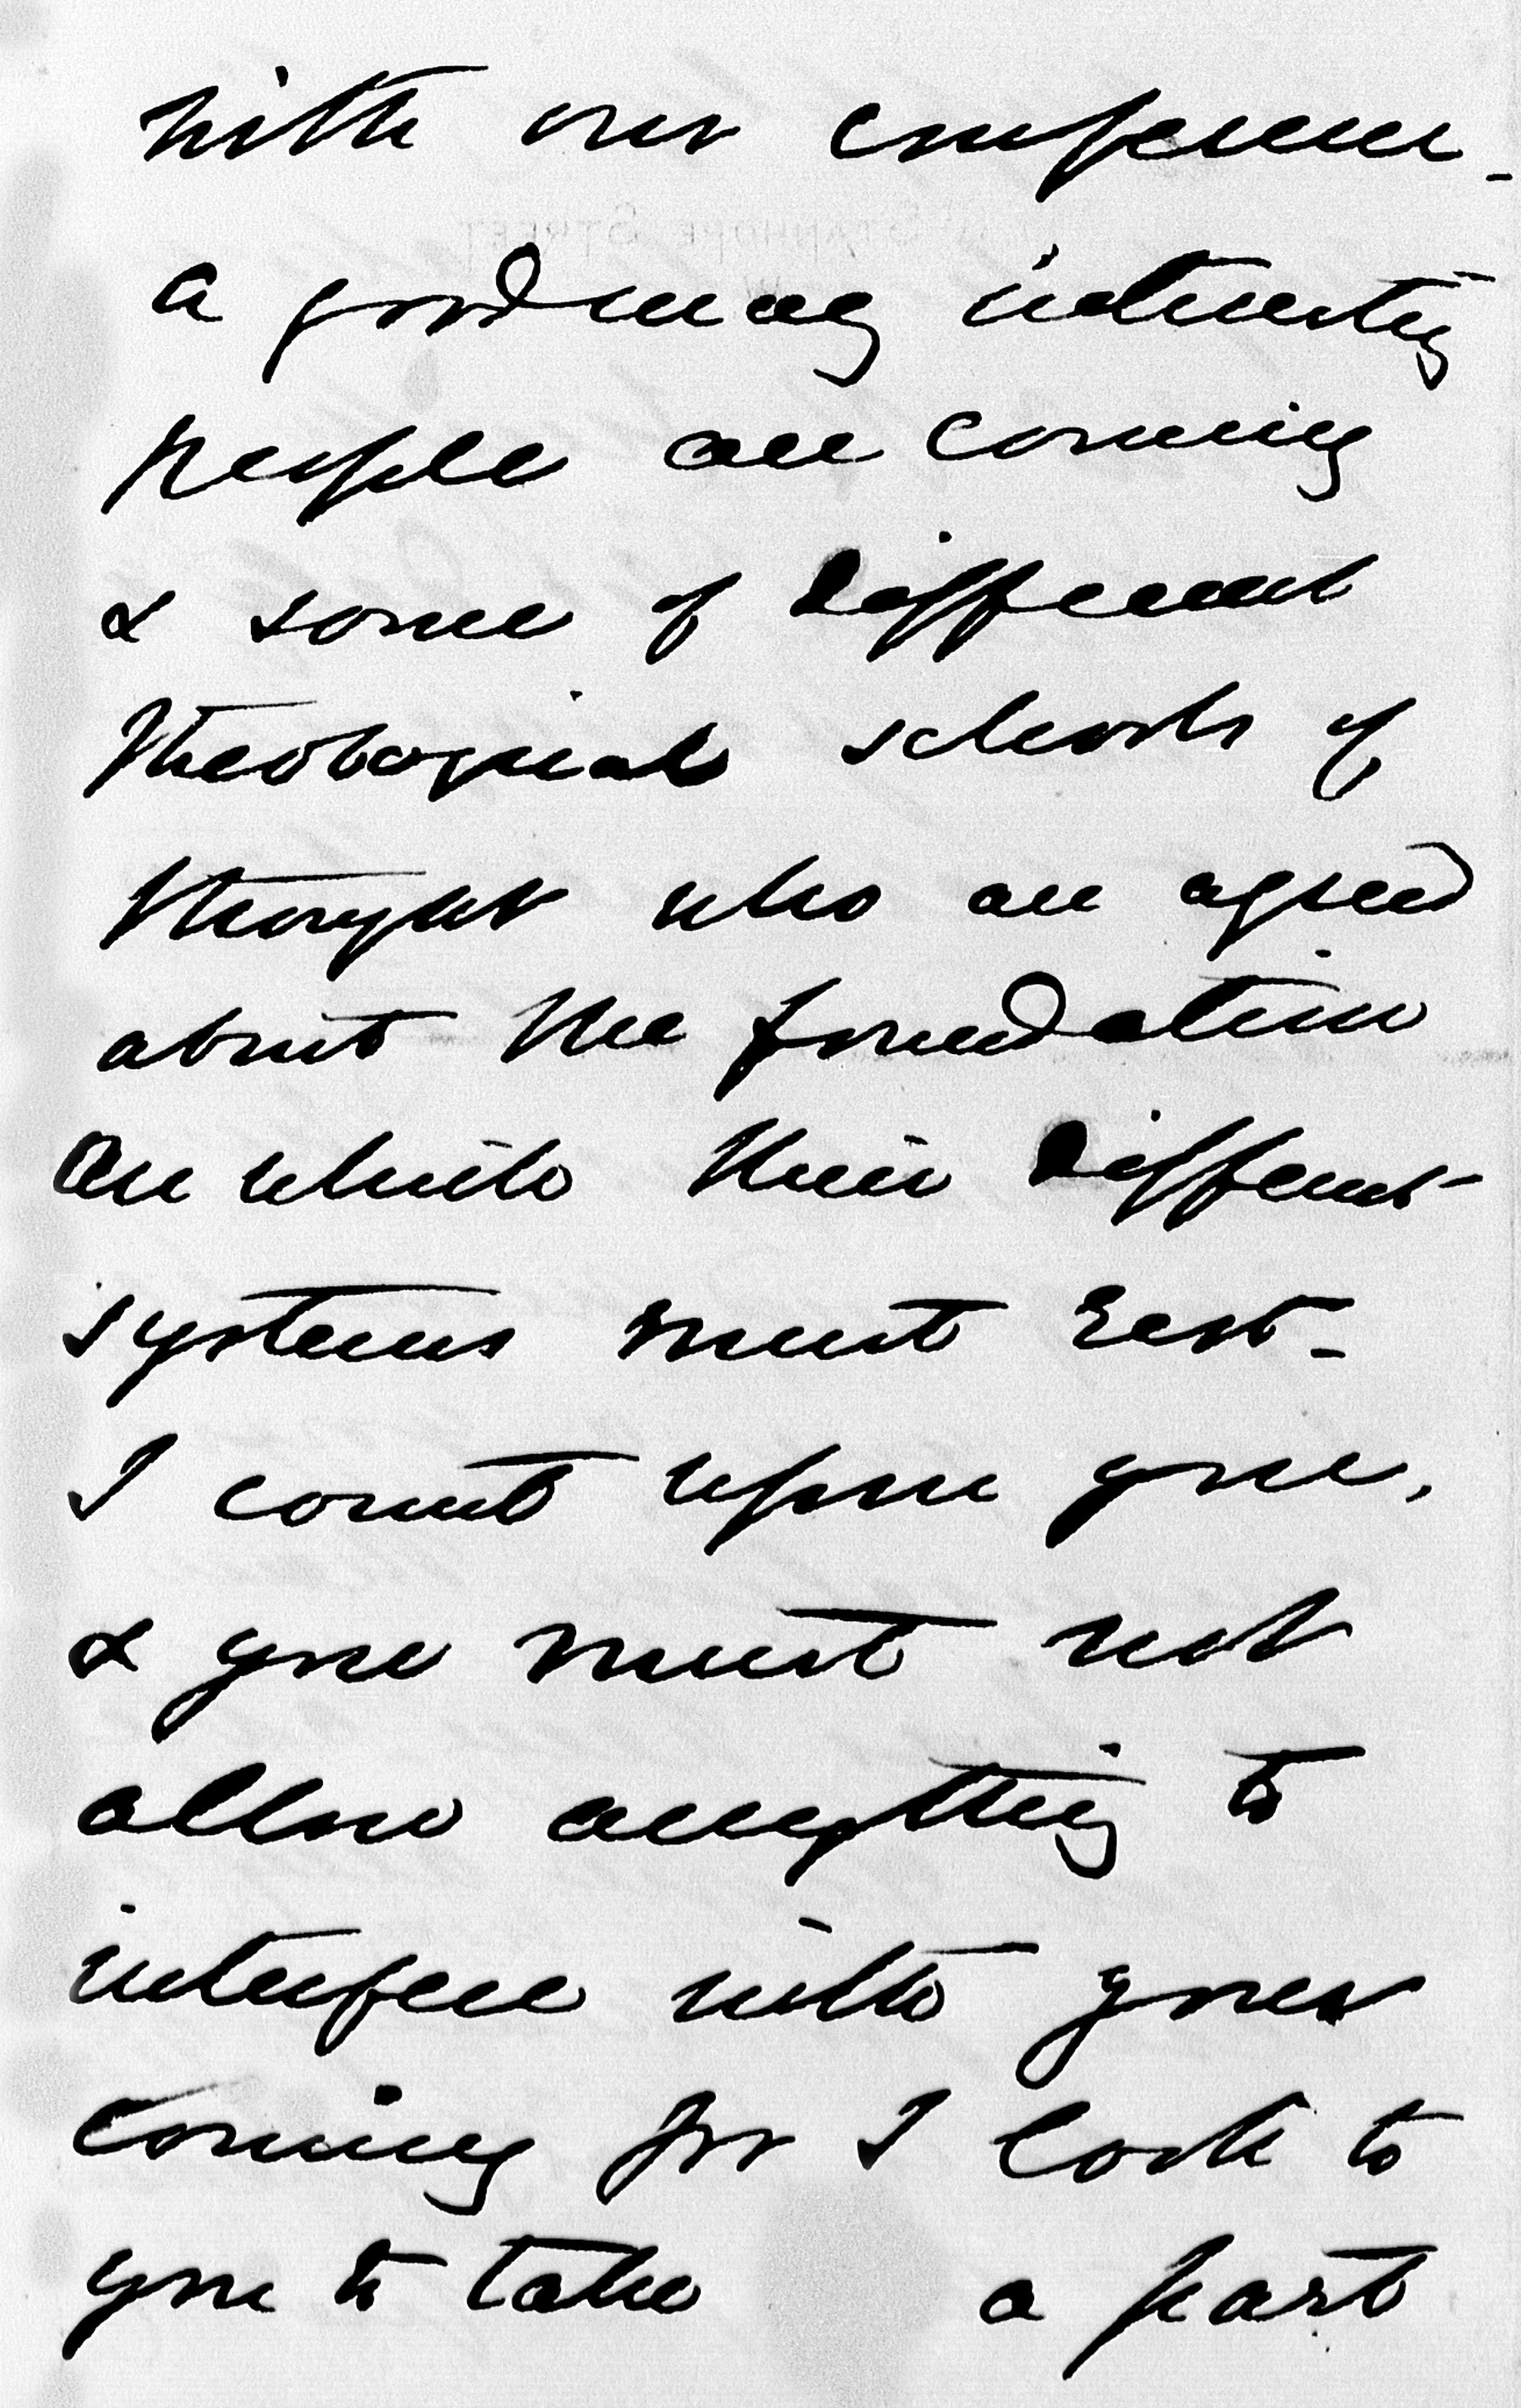 with our conference -
a good many interesting
people are coming
& some of different
theological schools of
thought who are agreed
about the foundation
on which their different
systems must rest -
I count upon you,
& you must not
allow anything to
interfere with your
coming for I look to
you to take a part